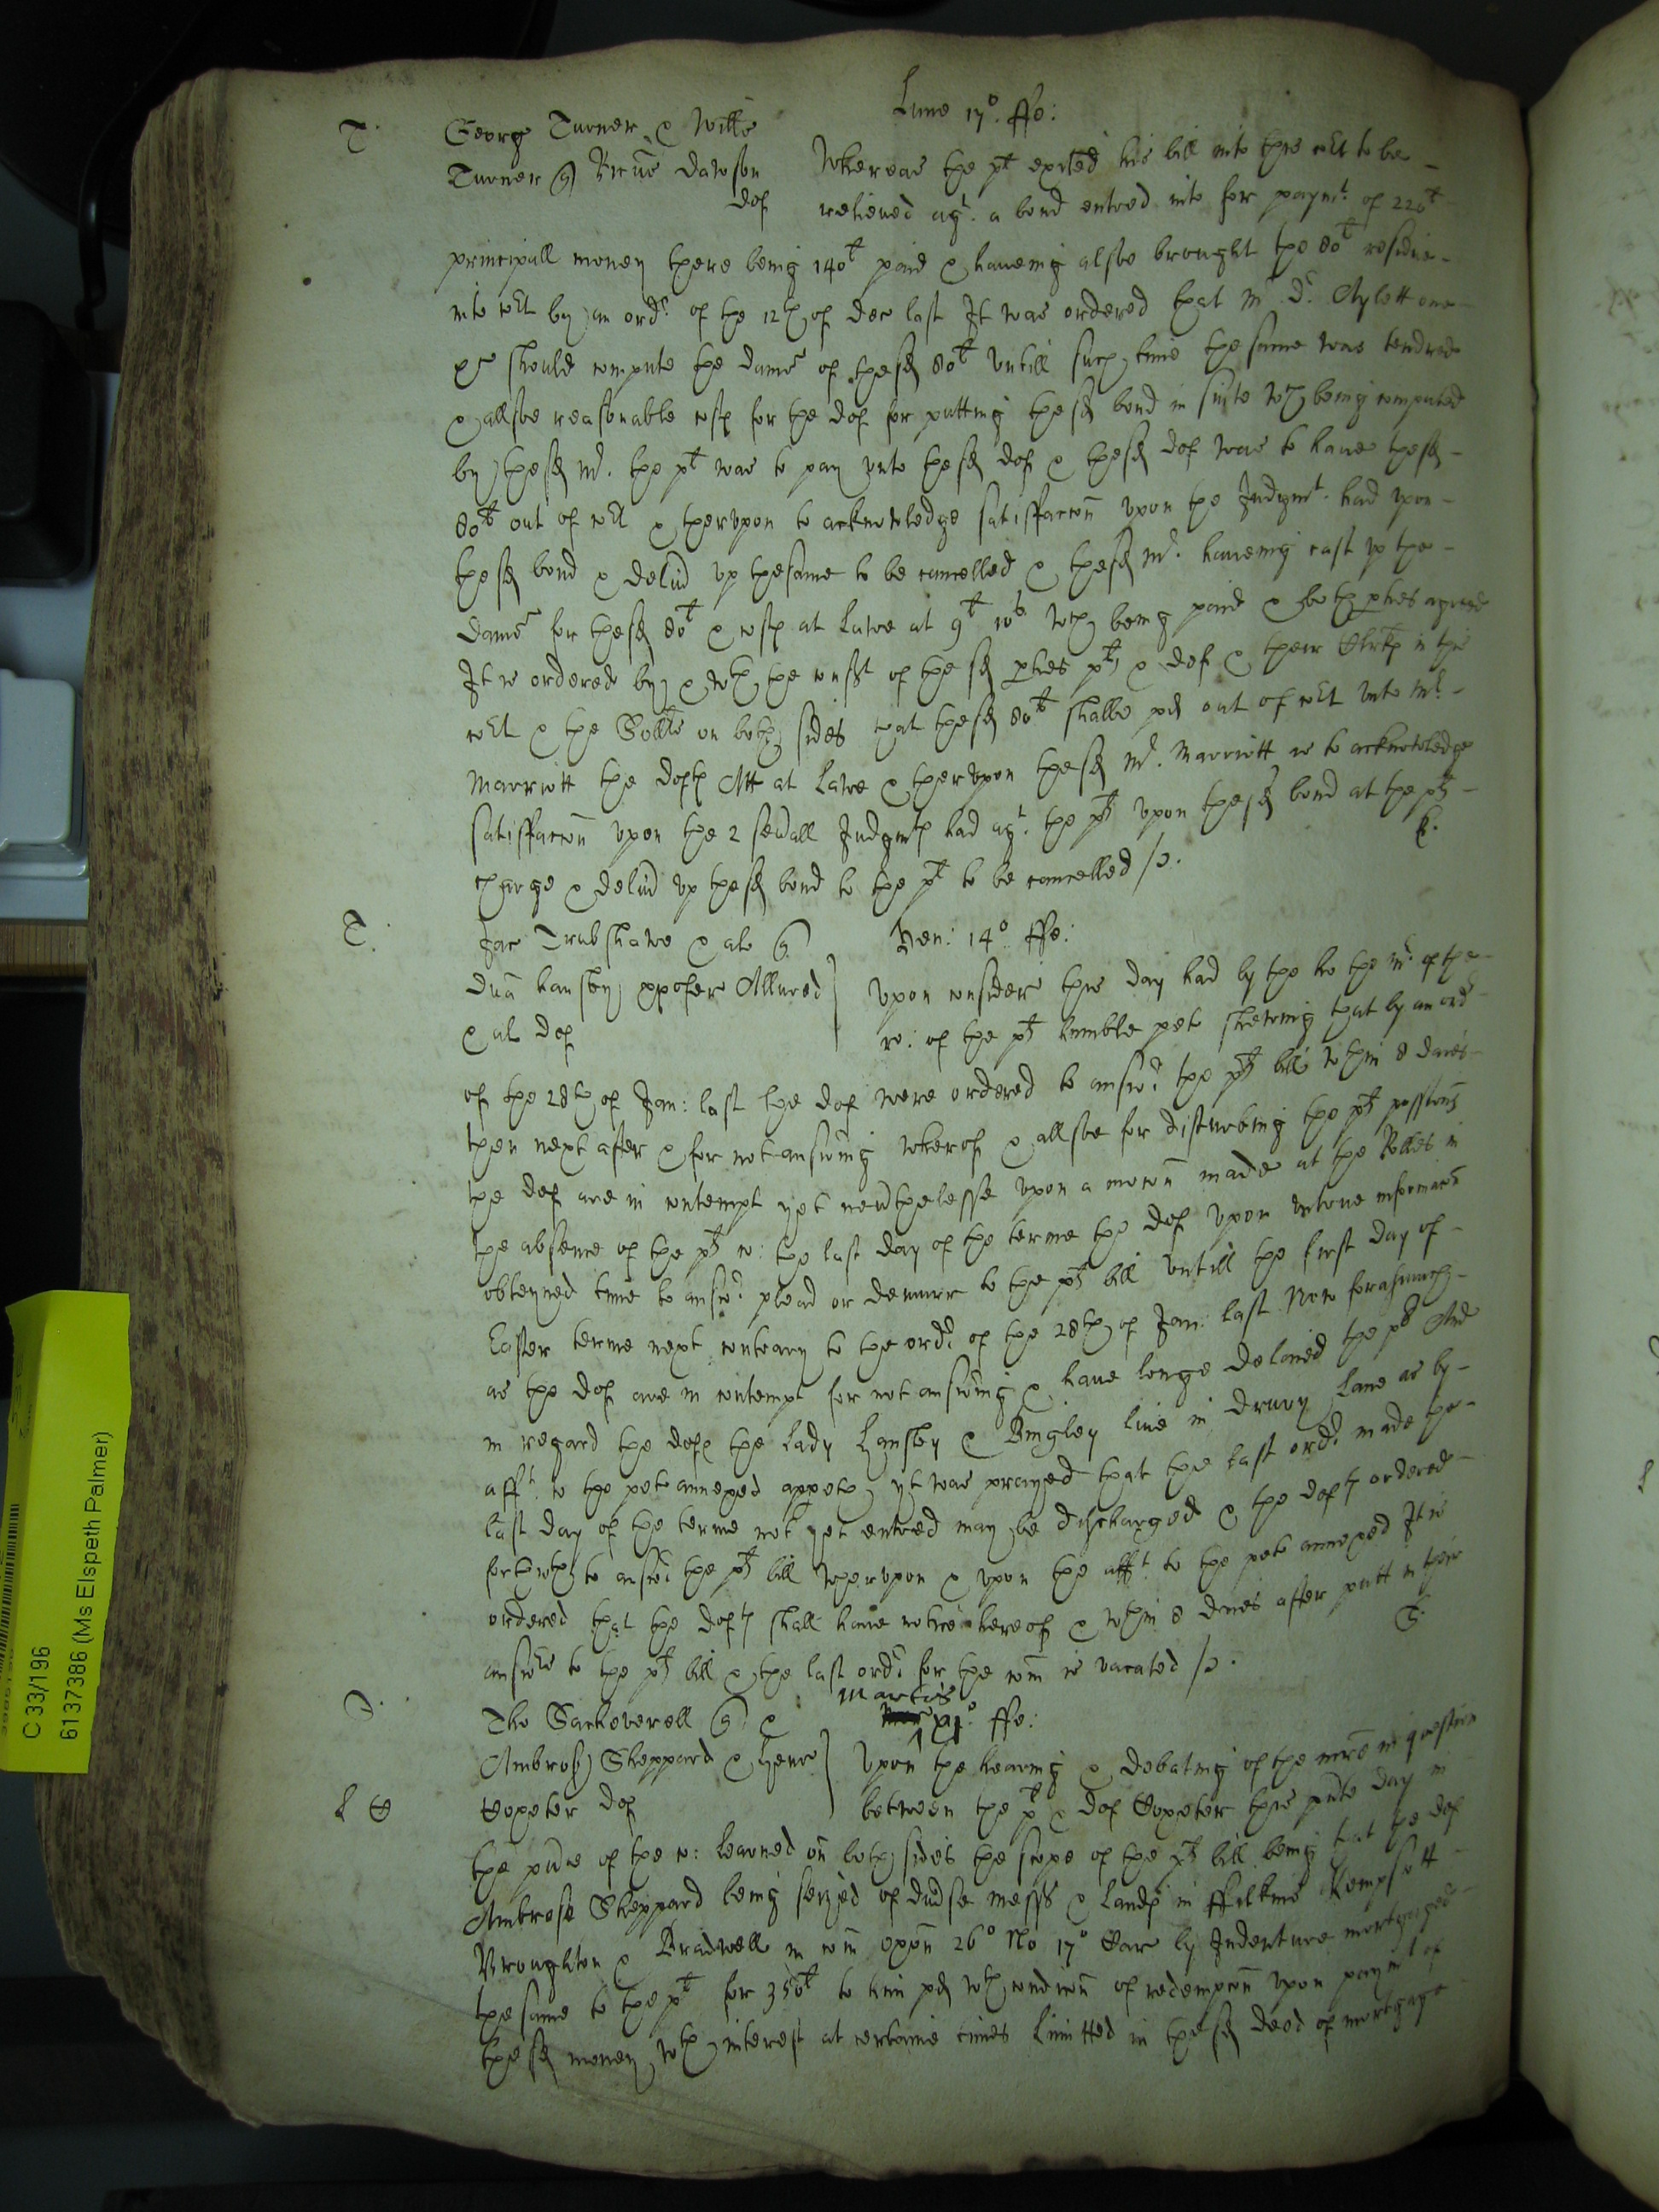 Lune 17º ffe:
T. George Turner & Willm
Turner Ricus Dawson Whereas the plt exited his bill into this Cort to be
def relieved agt. a bond entred into for paymt. of 220l
principall money there being 140l paid & haueing alsoe brought the 80l residue
into Cort by an ordr. of the 12th of Dec last It was ordered that Mr. Dr. Aylett one
&c should compute the damｅs of the sd 80l vntill such time the same was tendred
& allsoe reasonable costs for the def for putting the sd bond in suite wch being computed
by the sd Mr. the plt was to pay vnto the sd def & the sd def was to haue the sd
80l out of Cort & thervpon to acknowledge satisfaccon vpon the Judgmt. had vpon
the sd bond & deliu vp the same to be cancelled & the sd Mr. haueing cast vp the
dames for the sd 80l & costs at Lawe at 9l 10s wch being paid & both pties agreed
It is ordered by & wth the consst of the sd pties plts & def & their Clrks in this
Cort & the Sollrs on both sides that the sd 80l shalbe pd out of Cort vnto Mr.
Marriott the defts Att at Lawe & thervpon the sd Mr. Marriott is to acknowledge
satisfaccon vpon the 2 seuall Judgmts had agt. the plts vpon the sd bond at the plts
charge & deliu vp the sd bond to the plt to be cancelled /.
T. Jac Trubshawe & al
Ven: 14º ffe:
Dna Hansby Allured Vpon consider this day had by the ho the Mr. of the
& al def ro: of the plts humble peto shewing that by an ord
of the 28th of Jan: last the def were ordered to answr. the plts bill wthin 8 daies
then next after & for not answing wherof & allsoe for disturbing the plts possions
the def are in contempt yet neuthelesse vpon a mocon made at the Rolles in
the absence of the plts co: the last day of the terme the def vpon vntrue informacon
obteyned time to answr. plead or demurr to the plts bill vntill the first day of
Easter terme next contrary to the ordr. of the 28th of Jan: last Now forasmuch
as the def are in contempt for not answing & haue longe delaied the plts And
in regard the defts the Lady Hansby & Bingley liue in drury Lane as by
afft. to the peto annexed appeth yt was prayed that the last ordr. made the
last day of the terme not yet entred may be discharged & the defts ordered
forthwth to answr. the plts bill Wherupon & vpon the afft. to the peto annexed It is
ordered that the defts shall haue notice hereof & wthin 8 daies after putt in their
answrs to the plts bill & the last ordr. for the com is vacated /.
Tho Sacheverell Martis
ffe:
Ambrose Sheppard & Henr Vpon the hearing & debating of the mre in question
Coxeter def between the plt & def Coxeter this pnte day in
the pnce of the co: learned on both sides the scope of the plts bill being that the def
Ambrose Sheppard being seized of diuse messs & Lands in ffilkins Kempsett
Broughton & Bradwell in com Oxon 26º No 17º Car by Indenture mortgaged
the same to the plt for 350l to him pd wth condicon of redempcon vpon paymt of
the sd money wth interest at certaine times limitted in the sd deed of mortgage
C 33/196
6137386 (Ms Elspeth Palmer)